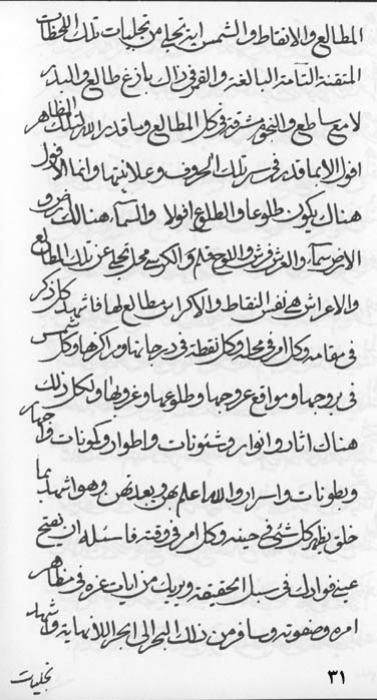 المطالع والانقاط والشمس اية تجلی من تجليات تلك اللحظات
المتقنة التآمة البالغة والقمر فی ذاك بازغ طالع والبدر
لامع ساطع والنجوم مشرقة فی كل المطالع وما قدر الله لتلك المظاهر
افول الا بما قدر فی سر تلك الحروف وعلانيتها وانما الافول
هناك يكون طلوعا والطلوع افولا والسمآء هنالك ارض و
الارض سمآء والعرش فرش واللوح قلم والكرسی محل تجلی عن تلك المطالع
والاعراش هی نفس النقاط والاكراس مطالع لها فاشهد كل ذكر
فی مقامه وكل امر فی محله وكل نقطة فی درجاتها ومراكزها وكل شمس
فی بروجها ومواقع عروجها وطلوعها وغروبها ولكل ذلك
هناك اثار وانوار وشئونات واطوار وكونات واجهار
وبطونات واسرار والله اعلم بهن وبعدتهن وهو اشهد بما
خلق يظهر كل شیء فی حينه وكل امر فی وقته فاسئله ان يفتح
عينی فوادك فی سبل الحقيقة ويريك من ايات عزه فی مظاهر
امره وصفوته وسافر من ذلك البحر الی ابحر اللانهاية واشهد
٣١
تجليات